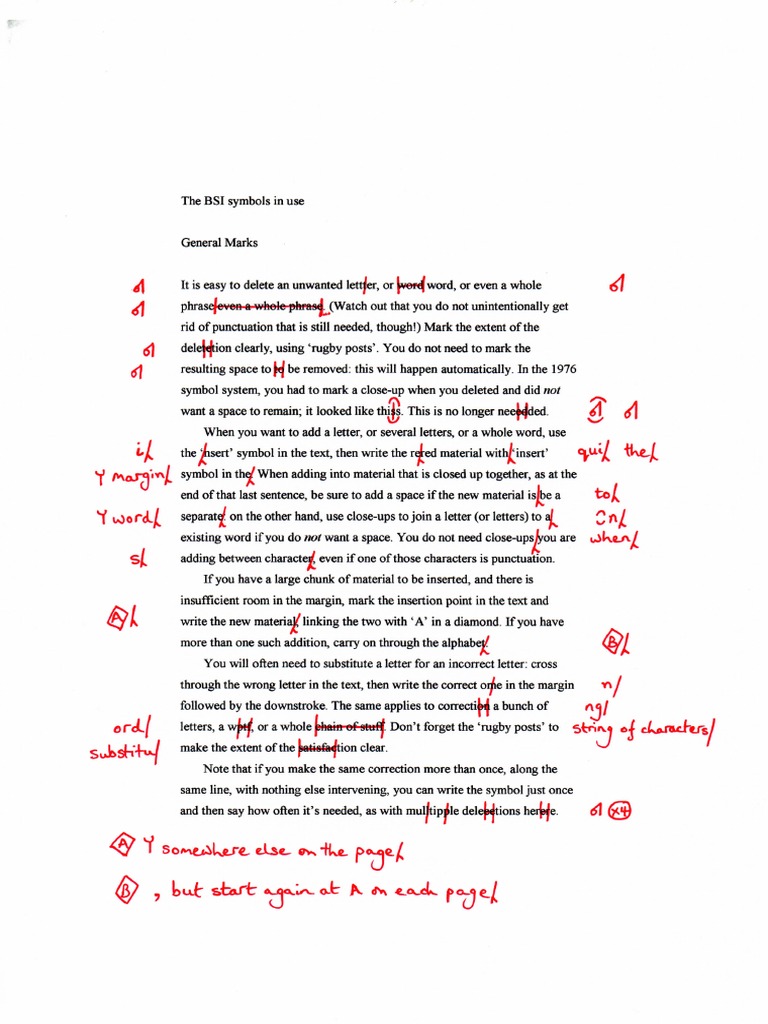 The BSI symbols in use
General Marks
It is easy to delete an unwanted lettter, or word word, or even a whole
phrase even a whole phrase. (Watch out that you do not unintentionally get
rid of punctuation that is still needed, though!) Mark the extent of the
deletion clearly, using ‘rugby posts’. You do not need to mark the
resulting space to be removed: this will happen automatically. In the 1976
symbol system, you had to mark a close-up when you deleted and did not
want a space to remain; it looked like thiss. This is no longer needed.
When you want to add a letter, or several letters, or a whole word, use
i the ‘nsert’ symbol in the text, then write the rered material with ‘insert’ qui the
Y margin symbol in the. When adding into material that is closed up together, as at the
end of that last sentence, be sure to add a space if the new material is be a to
Y word separate; on the other hand, use close-ups to join a letter (or letters) to a n
existing word if you do not want a space. You do not need close-ups you are when
s adding between character, even if one of those characters is punctuation.
If you have a large chunk of material to be inserted, and there is
insufficient room in the margin, mark the insertion point in the text and
A write the new material, linking the two with ‘A’ in a diamond. If you have
more than one such addition, carry on through the alphabet. B
You will often need to substitute a letter for an incorrect letter: cross
through the wrong letter in the text, then write the correct ome in the margin n/
followed by the downstroke. The same applies to correcti a bunch of ng/
ord/ letters, a w, or a whole chain of stuff. Don’t forget the ‘rugby posts’ to string of characters/
substitu/ make the extent of the satisfaction clear.
Note that if you make the same correction more than once, along the
same line, with nothing else intervening, you can write the symbol just once
and then say how often it’s needed, as with multipple deletions here. x4
A Y somewhere else on the page
B , but start again at A on each page